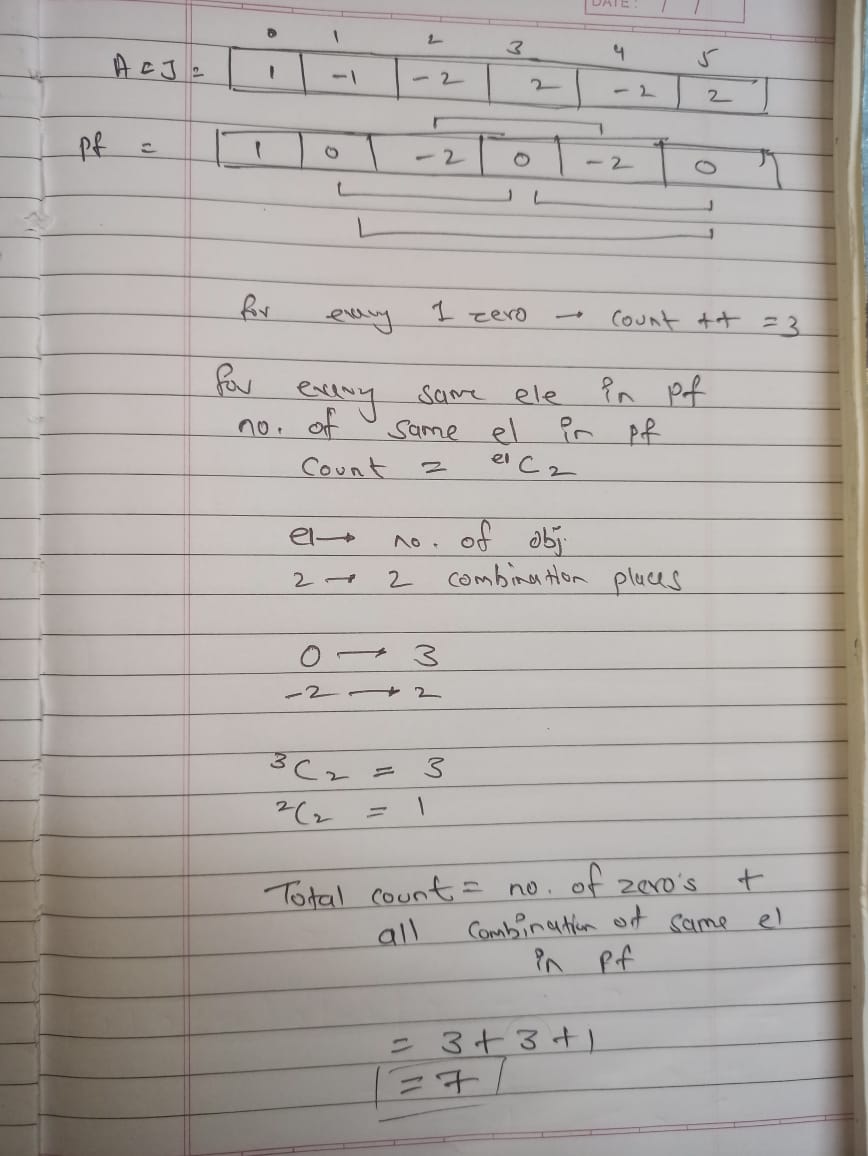 DATE: / /
0 1 2 3 4 5
A[] = 1 -1 -2 2 -2 2
pf = 1 0 -2 0 -2 0
for every 1 zero → count ++ = 3
for every same ele in pf
no. of same el in pf
Count = elC2
el → no. of obj.
2 → 2 combination places
0 → 3
-2 → 2
3C2 = 3
2C2 = 1
Total count = no. of zero's +
all combination of same el
in pf
= 3 + 3 + 1
= 7